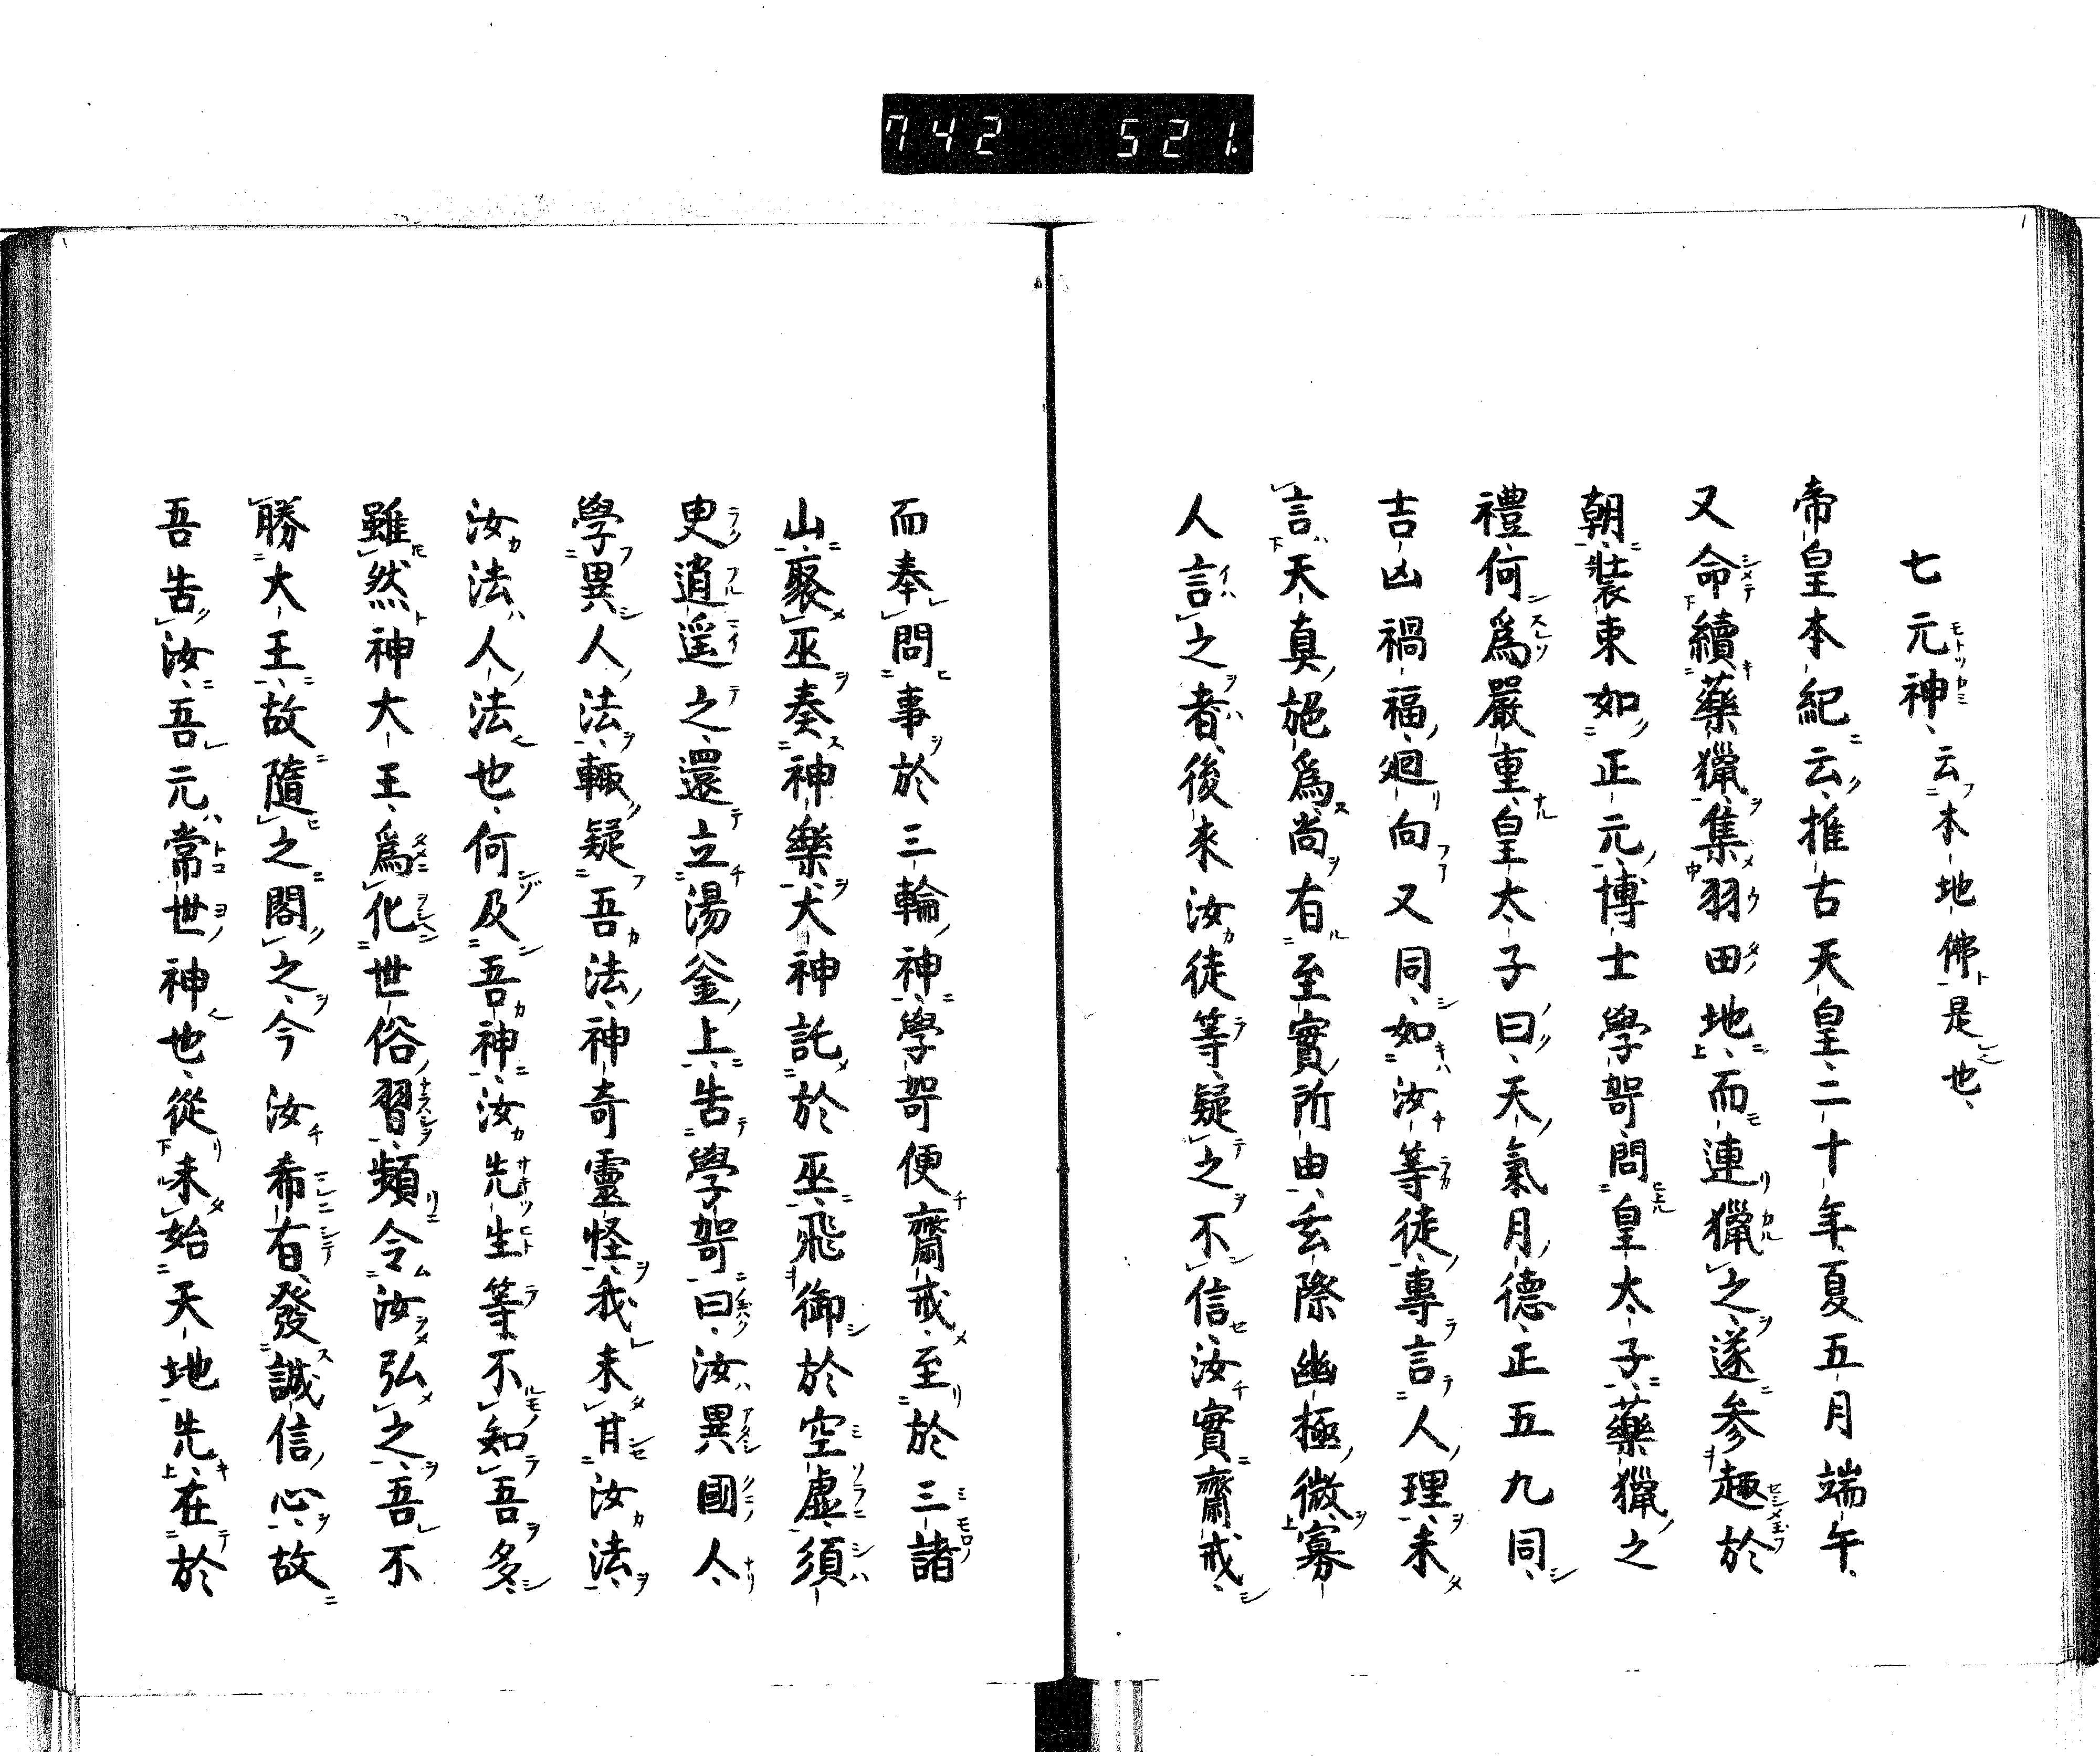 742 521.
七元神云本地佛是也
帝皇本紀云推古天皇二十年夏五月端午
又命續藥獵集羽田地而連獵之遂参趣於
朝裝束如正元博士學哿問皇太子藥獵之
禮何爲嚴重皇太子曰天氣月德正五九同
吉凶禍福廻向又同如汝等徒專言人理未
言天真絶爲尚有至實所由玄際幽極微寡
人言之者後来汝徒等疑之不信汝實齋戒
而奉問事於三輪神學哿便齋戒至於三諸
山褻巫奏神樂大神託於巫飛御於空虛須
更逍遥之還立湯釜上告學哿曰汝異國人
學異人法輙疑吾法神奇靈怪我未甘汝法
汝法人法也何及吾神汝先生等不知吾多
雖然神大王爲化世俗習頻令汝弘之吾不
勝大王故隨之閣之今汝希有發誠信心故
吾告汝吾元常世神也從未始天地先在於